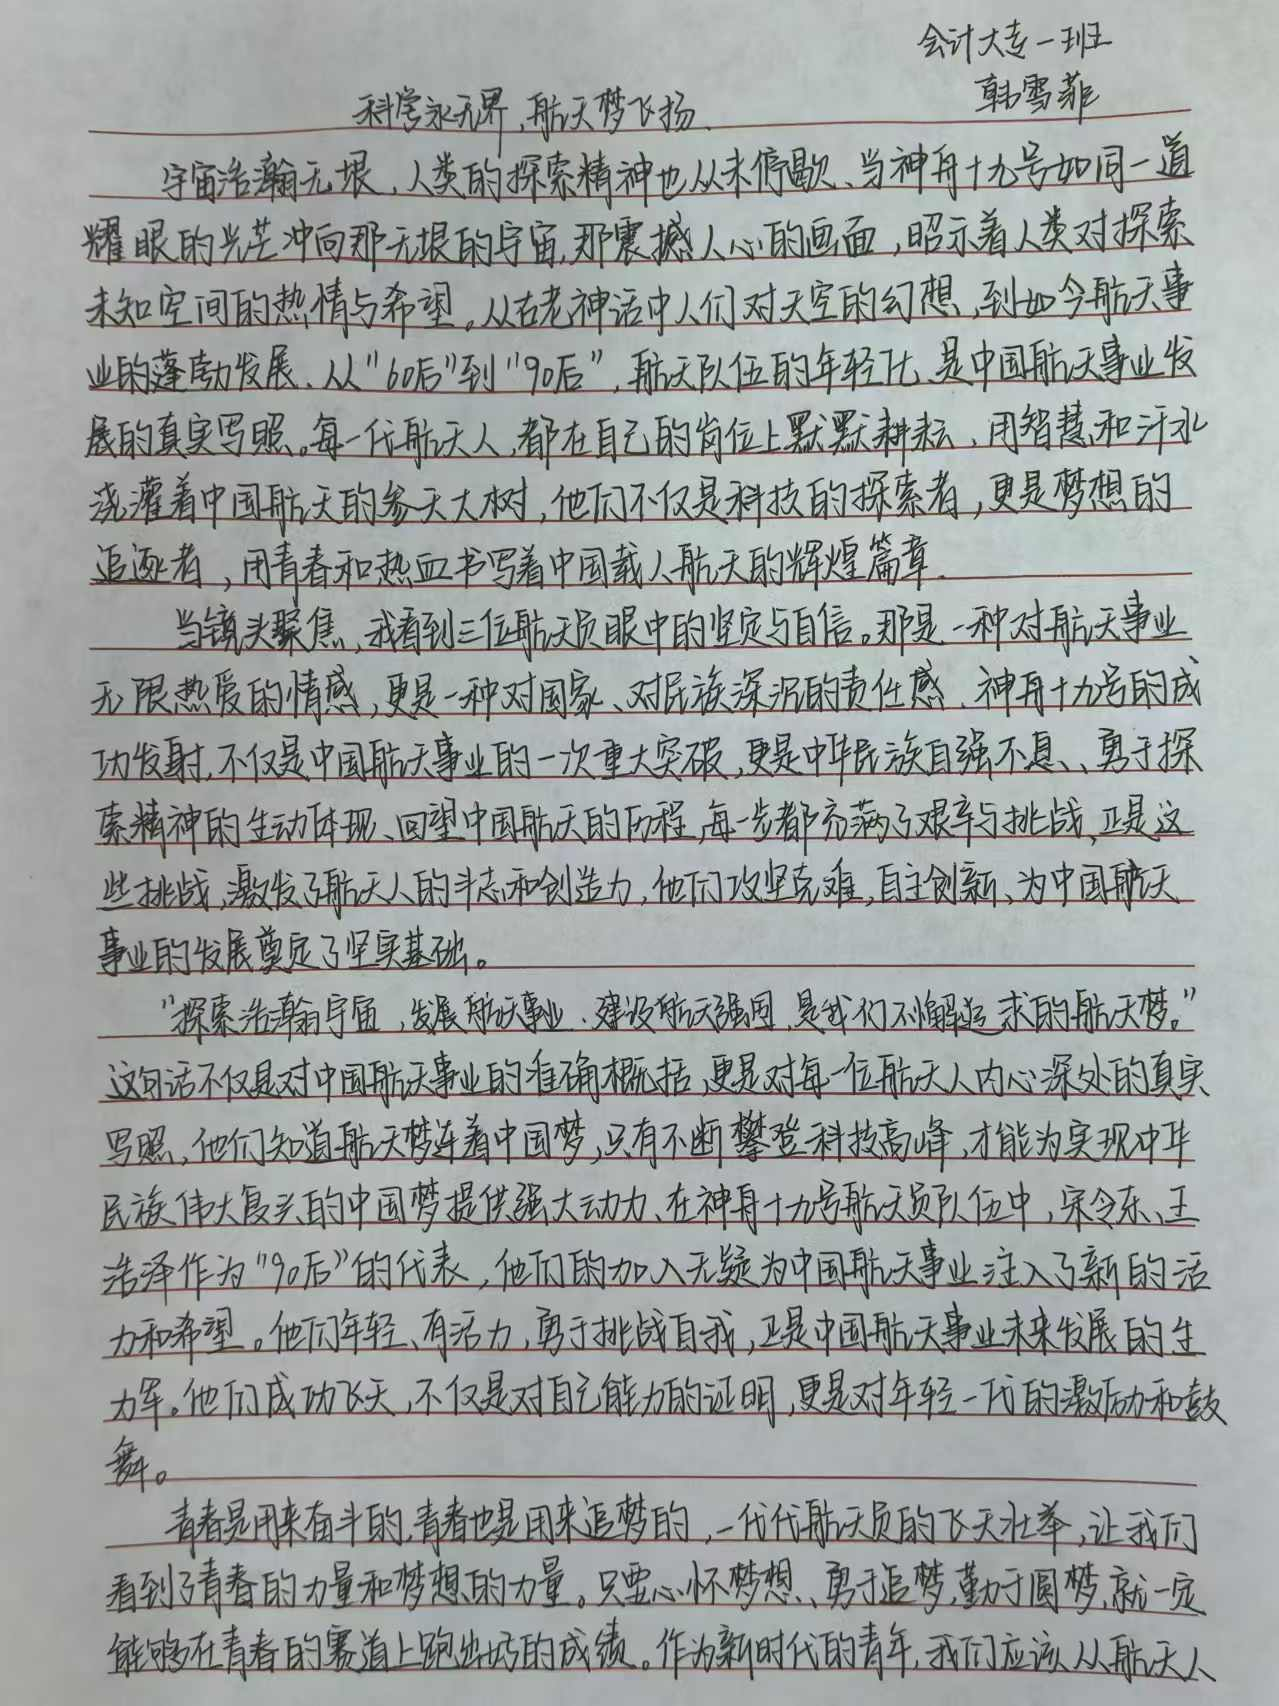 会计大专一班
韩雪菲
科学永无界,航天梦飞扬.
宇宙浩瀚无垠,人类的探索精神也从未停歇、当神舟十九号如同一道
耀眼的光芒冲向那无垠的宇宙,那震撼人心的画面,昭示着人类对探索
未知空间的热情与希望。从古老神话中人们对天空的幻想,到如今航天事
业的蓬勃发展、从“60后”到“90后”,航天队伍的年轻化、是中国航天事业发
展的真实写照。每一代航天人,都在自己的岗位上默默耕耘、用智慧和汗水
浇灌着中国航天的参天大树,他们不仅是科技的探索者,更是梦想的
追逐者,用青春和热血书写着中国载人航天的辉煌篇章.
当镜头聚焦,我看到三位航天员眼中的坚定与自信。那是一种对航天事业
无限热爱的情感,更是一种对国家、对民族深沉的责任感、神舟十九号的成
功发射,不仅是中国航天事业的一次重大突破,更是中华民族自强不息、勇于探
索精神的生动体现、回望中国航天的历程,每一步都充满了艰辛与挑战、正是这
些挑战,激发了航天人的斗志和创造力,他们攻坚克难,自主创新、为中国航天
事业的发展奠定了坚实基础。
“探索浩瀚宇宙,发展航天事业、建设航天强国,是我们不懈追求的航天梦。”
这句话不仅是对中国航天事业的准确概括,更是对每一位航天人内心深处的真实
写照,他们知道航天梦连着中国梦,只有不断攀登科技高峰,才能为实现中华
民族伟大复兴的中国梦提供强大动力、在神舟十九号航天员队伍中,宋令东、王
浩泽作为“90后”的代表,他们的加入无疑为中国航天事业注入了新的活
力和希望。他们年轻、有活力,勇于挑战自我,正是中国航天事业未来发展的生
力军。他们成功飞天,不仅是对自己能力的证明,更是对年轻一代的激励和鼓
舞。
青春是用来奋斗的,青春也是用来追梦的,一代代航天员的飞天壮举,让我们
看到了青春的力量和梦想的力量。只要心怀梦想、勇于追梦,勤于圆梦,就一定
能够在青春的赛道上跑出好的成绩。作为新时代的青年,我们应该从航天人